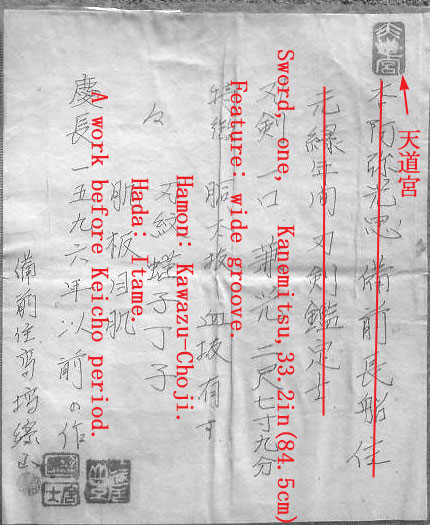 天道宮
本阿弥光 備前長船住
元緑年间刃剣鑑定士
Sword, one, Kanemitsu, 33.2in(84.5cm)
刃剣一口 兼光 二尺七寸九分
Feature: wide groove.
特徴 血 有す
Hamon: Kawazu-Choji.
々 刃紋 子丁子
Hada: Itame.
肌板目肌
A work before Keicho period.
慶長一五九六年以前の作
備前住